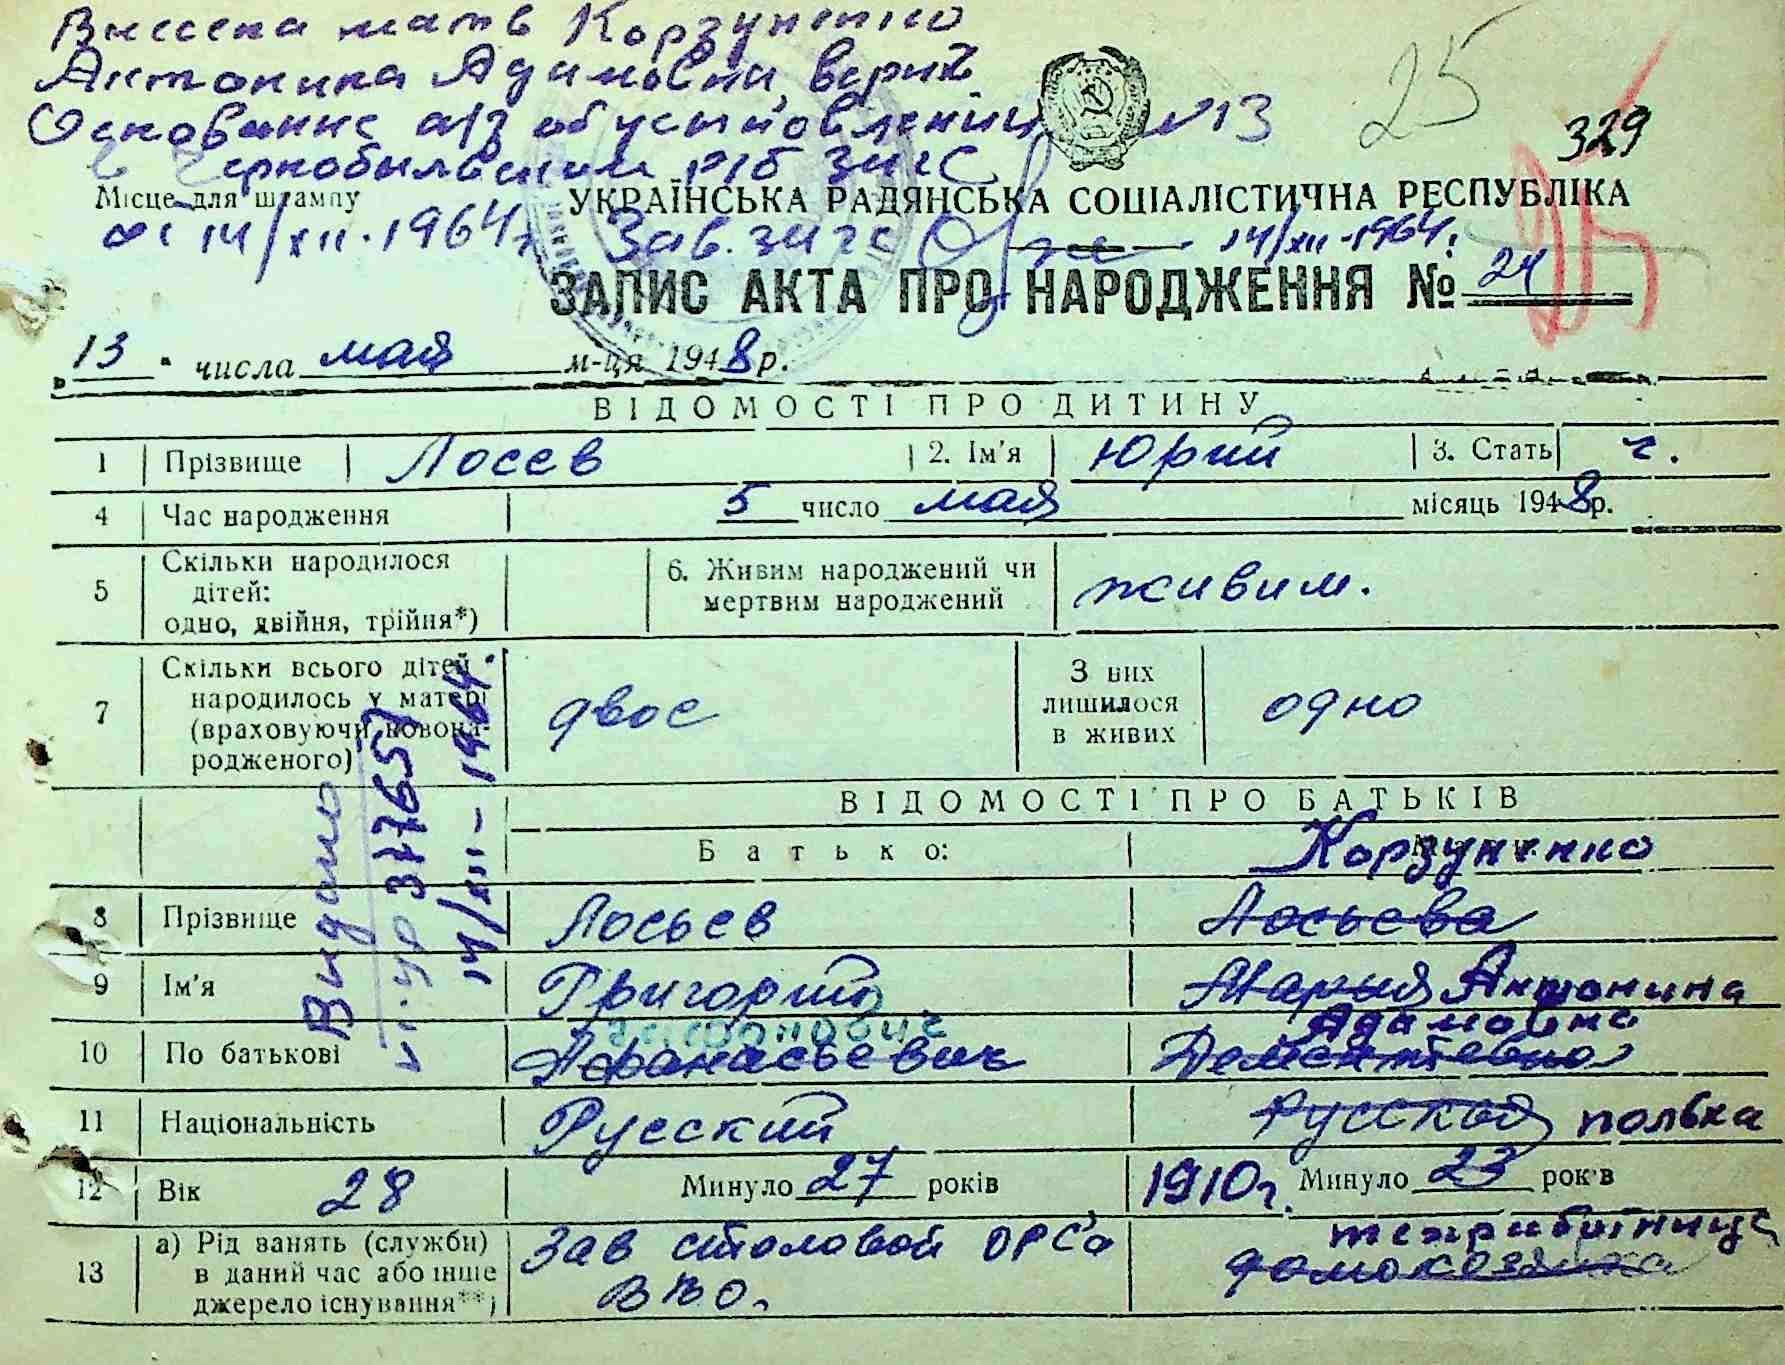 Внесена мать Корзуненко
Антонина Адамовна,
Основание а/з об установлении №13
в Чернобыльском р/б ЗАГС
25
329
Місце для штампу
УКРАЇНСЬКА РАДЯНСЬКА СОЦІАЛІСТИЧНА РЕСПУБЛІКА
от 14/XII-1964г. Зав. загс 14/XII-1964г.
ЗАПИС АКТА ПРО НАРОДЖЕННЯ № 24
13 числа мая м-ця 1948 р.
ВІДОМОСТІ ПРО ДИТИНУ
1 Прізвище Лосев 2. Ім'я Юрий 3. Стать ч.
4 Час народження 5 число мая місяць 1948 р.
5 Скільки народилося дітей: одно, двійня, трійня*) 6. Живим народжений чи мертвим народжений живим.
7 Скільки всього дітей народилось у матері (враховуючи новонародженого) двоє З них лишилося в живих одно
ВІДОМОСТІ ПРО БАТЬКІВ
Батько: Корзуненко
8 Прізвище Лосьев Лосьева
9 Ім'я Григорий Мария Антонина
Адамовна
10 По батькові Афанасьевич Дементьевна
11 Національність Русский Русская полька
12 Вік 28 Минуло 27 років 1910г. Минуло 23 років
13 а) Рід занять (служби) в даний час або інше джерело існування**) Зав столовой ОРС'а техробітниця домохозяйка
Видано
377657
14/XII-1964.